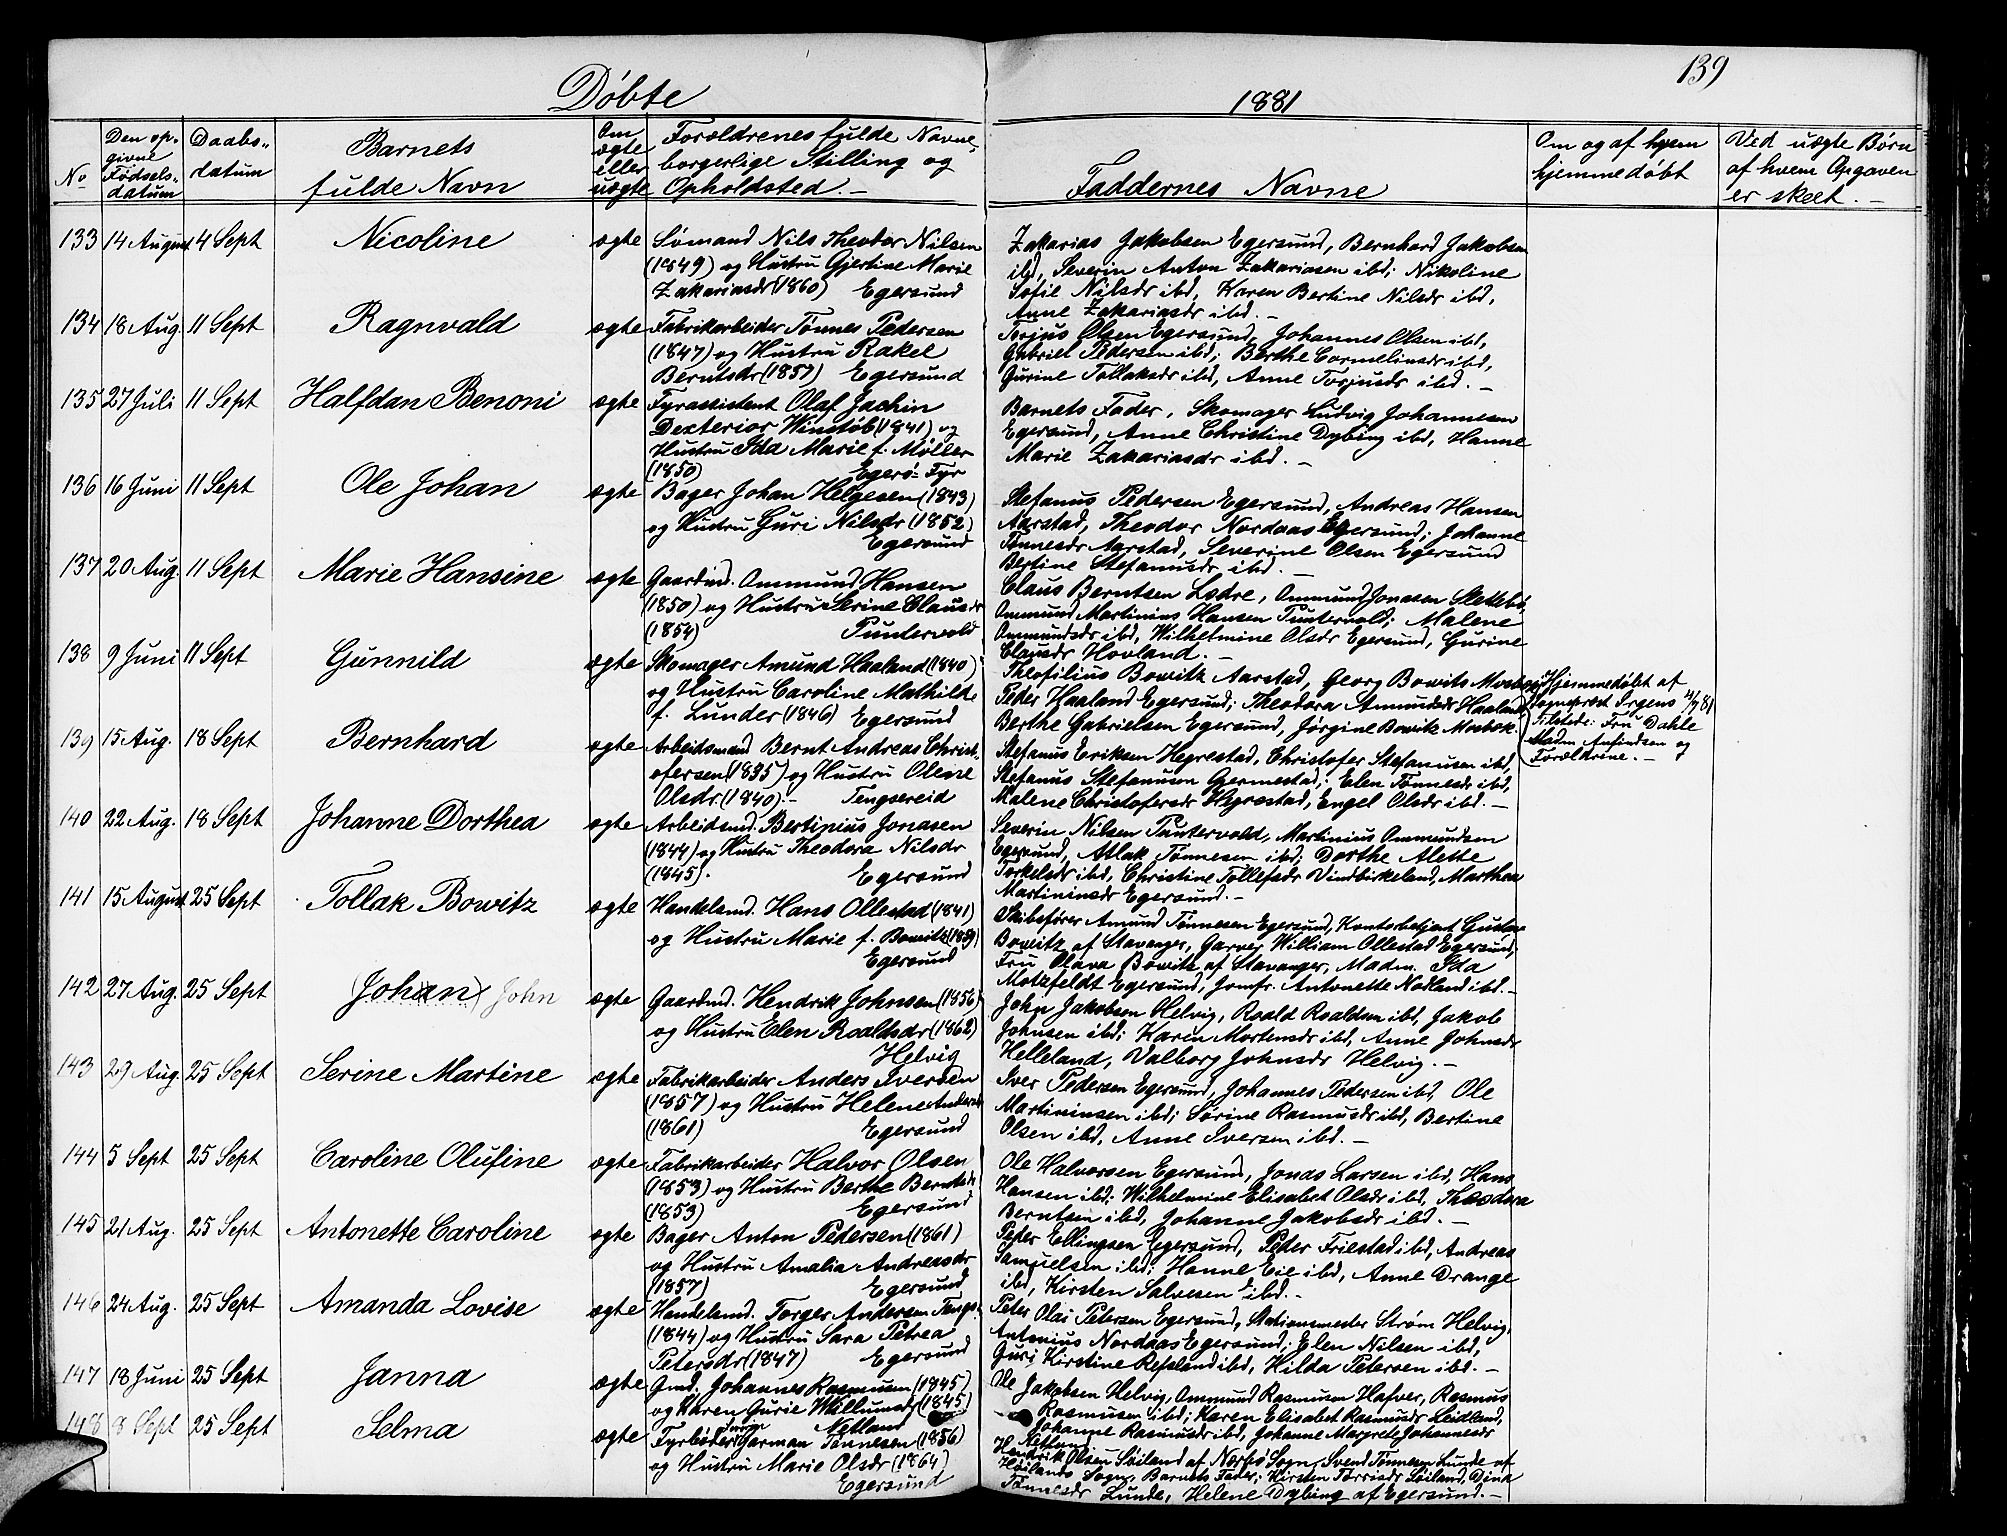 139
Døbte
1881
No
Den op-
givne
Fødsels-
datum
Daabs-
datum
Barnets
fulde Navn
Om
ægte
eller
uægte
Forældrenes fulde Navne,
borgerlige Stilling og
Opholdsted. —
Faddernes Navne
Om og af hvem
hjemmedøbt
Ved uægte Børn
af hvem Opgaven
er skeet. —
133 14 August 4 Sept Nicoline ægte
Sømand Nils Theodor Nilsen
(1849) og Hustru Gjertine Marie
Zakariasdr (1860) Egersund
Zakarias Jakobsen Egersund, Bernhard Jakobsen
ibd, Severin Anton Zakariasen ibd; Nikoline
Sofie Nilsdr ibd, Karen Bertine Nilsdr ibd,
Anne Zakariasdr ibd. —
134 18 Aug. 11 Sept Ragnvald ægte
Fabrikarbeider Tønnes Pedersen
(1847) og Hustru Rakel
Berntsdr (1857) Egersund
Torjus Olsen Egersund, Johannes Olsen ibd,
Gabriel Pedersen ibd; Berthe Corneliusdr ibd,
Gurine Tollaksdr ibd, Anne Torjusdr ibd. —
135 27 Juli 11 Sept Halfdan Benoni ægte
Fyrassistent Olaf Jachin
Dexterior Winstöb (1841) og
Hustru Ida Marie f. Møller
(1850) Egerø Fyr
Barnets Fader, Skomager Ludvig Johannesen
Egersund, Anne Christine Dybing ibd, Hanne
Marie Zakariasdr ibd. —
136 16 Juni 11 Sept Ole Johan ægte
Bager Johan Helgesen (1843)
og Hustru Guri Nilsdr (1852)
Egersund
Stefanus Pedersen Egersund, Andreas Hansen
Aarstad, Theodor Nordaas Egersund; Johanne
Tønnesdr Aarstad, Severine Olsen Egersund
Bertine Stefanusdr ibd. —
137 20 Aug. 11 Sept Marie Hansine ægte
Gaardmd. Ommund Hansen
(1850) og Hustru Serine Clausdr
(1854) Puntervold
Claus Berntsen Lædre, Ommund Jonasen Slettebø,
Ommund Martinius Hansen Puntervold; Malene
Ommundsdr ibd, Wilhelmine Olsdr Egersund, Gurine
Clausdr Hovland. —
138 9 Juni 11 Sept Gunnild ægte
Skomager Amund Haaland (1840)
og Hustru Caroline Mathilde
f. Lunder (1846) Egersund
Theofilius Bowitz Aarstad, Georg Bowits Mosbæk
Peder Haaland Egersund; Theodora Amundsdr Haaland,
Berthe Gabrielsen Egersund, Jørgine Bowitz Mosbæk.
Hjemmedøbt af
Sognepræst Irgens 4/7 81
Tilstede: Fru Dahle
Madm. Anfindsen og
Forældrene. —
139 15 Aug. 18 Sept Bernhard ægte
Arbeidsmand Bernt Andreas Christ-
ofersen (1835) og Hustru Olene
Olsdr. (1840). — Tengsereid
Stefanus Eriksen Hegrestad, Christofer Stefanusen ibd,
Stefanus Stefanusen Gjermestad; Elen Tønnesdr ibd,
Malene Christofersdr Hegrestad, Engel Olsdr ibd. —
140 22 Aug. 18 Sept Johanne Dorthea ægte
Arbeidsmd. Bertinius Jonasen
(1844) og Hustru Theodora Nilsdr
(1845). Egersund
Severin Nilsen Puntervold, Martinius Ommundsen
Egersund, Atlak Tønnesen ibd; Dorthe Alette
Torkelsdr ibd, Christine Tollefsdr Vindbirkeland, Marthea
Martiniusdr Egersund. —
141 15 August 25 Sept Tollak Bowitz ægte
Handelsmd. Hans Ollestad (1841)
og Hustru Marie f. Bowitz (1859)
Egersund
Skibsfører Amund Tønnesen Egersund, Kontorbetjent Gustav
Bowitz af Stavanger, Garver William Ollestad Egersund,
Fru Olava Bowitz af Stavanger, Madm. Ida
Motzfeldt Egersund, Jomfr. Antonette Nødland ibd. —
142 27 Aug. 25 Sept (Johan) John ægte
Gaardmd. Hendrik Johnsen (1856)
og Hustru Elen Roaltsdr (1862)
Helvig
John Jakobsen Helvig, Roald Roaldsen ibd, Jakob
Johnsen ibd; Karen Mortensdr ibd, Anne Johnsdr
Helleland, Valborg Johnsdr Helvig. —
143 29 Aug. 25 Sept Serine Martine ægte
Fabrikarbeider Anders Iversen
(1857) og Hustru Helene Andersdr
(1861) Egersund
Iver Pedersen Egersund, Johannes Pedersen ibd, Ole
Martininsen ibd; Sørine Rasmusdr ibd, Bertine
Olsen ibd, Anne Iversen ibd. —
144 5 Sept 25 Sept Caroline Olufine ægte
Fabrikarbeider Halvor Olsen
(1853) og Hustru Berthe Berntsdr
(1853) Egersund
Ole Halvorsen Egersund, Jonas Larsen ibd, Hans
Hansen ibd; Wilhelmine Elisabet Olsdr ibd, Theodora
Berntsen ibd, Johanne Jakobsdr ibd. —
145 21 Aug. 25 Sept Antonette Caroline ægte
Bager Anton Pedersen (1861)
og Hustru Amalia Andreasdr
(1857) Egersund
Peder Ellingsen Egersund, Peder Friestad ibd, Andreas
Samuelsen ibd; Hanne Eie ibd, Anne Drange
ibd, Kirsten Salvesen ibd. —
146 24 Aug. 25 Sept Amanda Lovise ægte
Handelsmd. Torger Andersen Tengs
(1844) og Hustru Sara Petrea
Petersdr (1847) Egersund
Peter Olai Petersen Egersund, Stationsmester Strøm Helvig,
Antonius Nordaas Egersund; Elen Nilsen ibd,
Guri Kirstine Refsland ibd, Hilda Petersen ibd. —
147 18 Juni 25 Sept Janna ægte
Gmd. Johannes Rasmusen (1845)
og Karen Gurie Willumsdr (1845)
Netland
Ole Jakobsen Helvig, Ommund Rasmusen Hafver, Rasmus
Rasmusen ibd; Karen Elisabet Rasmusdr Leidland,
Johanne Rasmusdr ibd, Johanne Margrete Johannesdr
Netland
148 8 Sept 25 Sept Selma ægte
Fyrbøder German Tønnesen (1856)
og Hustru Marie Olsdr (1864)
Egersund
Hendrik Olsen Søiland af Nærbø Sogn, Svend Tønnesen Lunde af
Høilands Sogn, Barnets Fader; Kirsten Torrisdr Søiland, Dina
Tønnesdr Lunde, Helene Dybing af Egersund. —